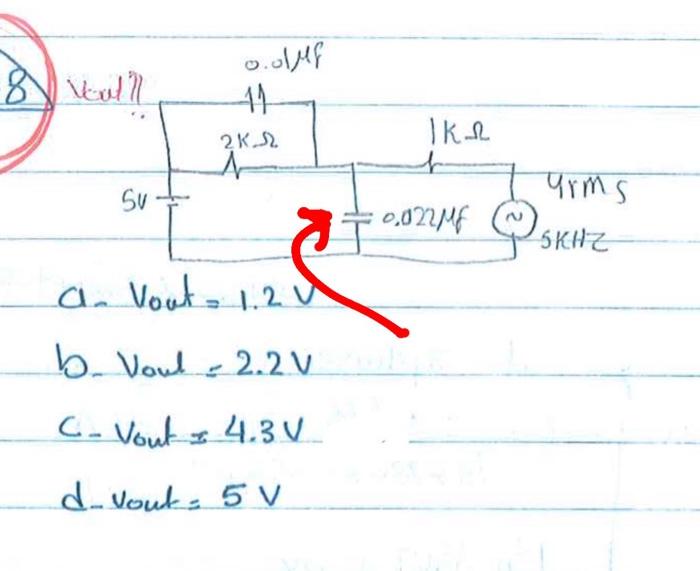 8 Vout??
0.01μf
2KΩ
1KΩ
5V
0.022μf
4rms
5KHZ
a- Vout = 1.2 V
b- Vout = 2.2 V
c- Vout = 4.3 V
d- Vout = 5 V